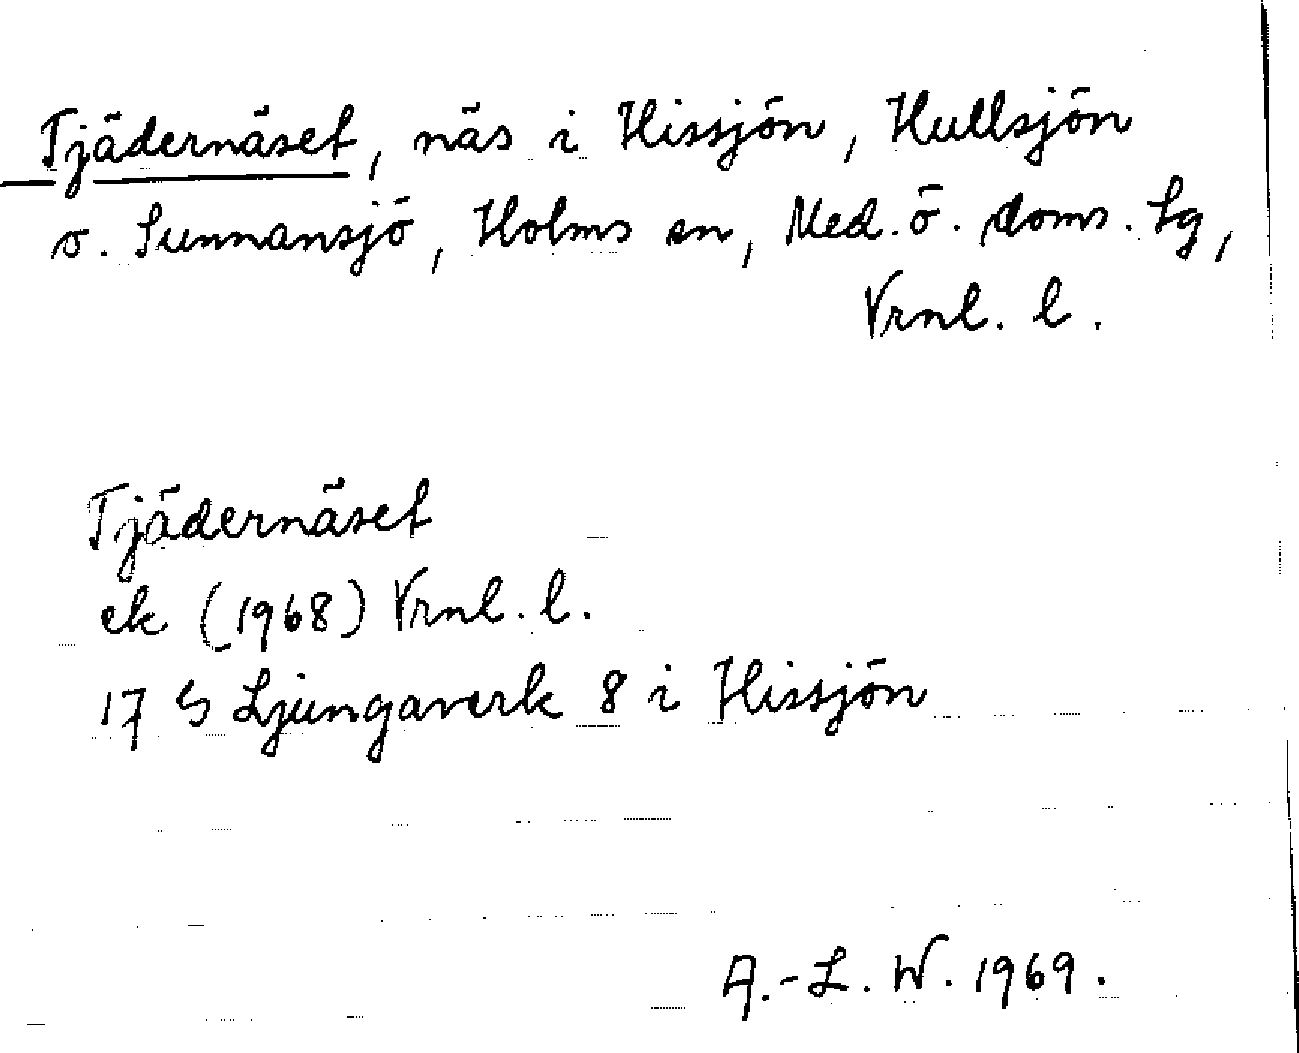 Tjädernäset, näs i Hissjön, Hullsjön
o. Sunnansjö, Holms sn, Med. ö. doms. lg,
Vrnl. l.
Tjädernäset
ek (1968) Vrnl. l.
17 G Ljungaverk 8 i Hissjön
A.-L. W. 1969.